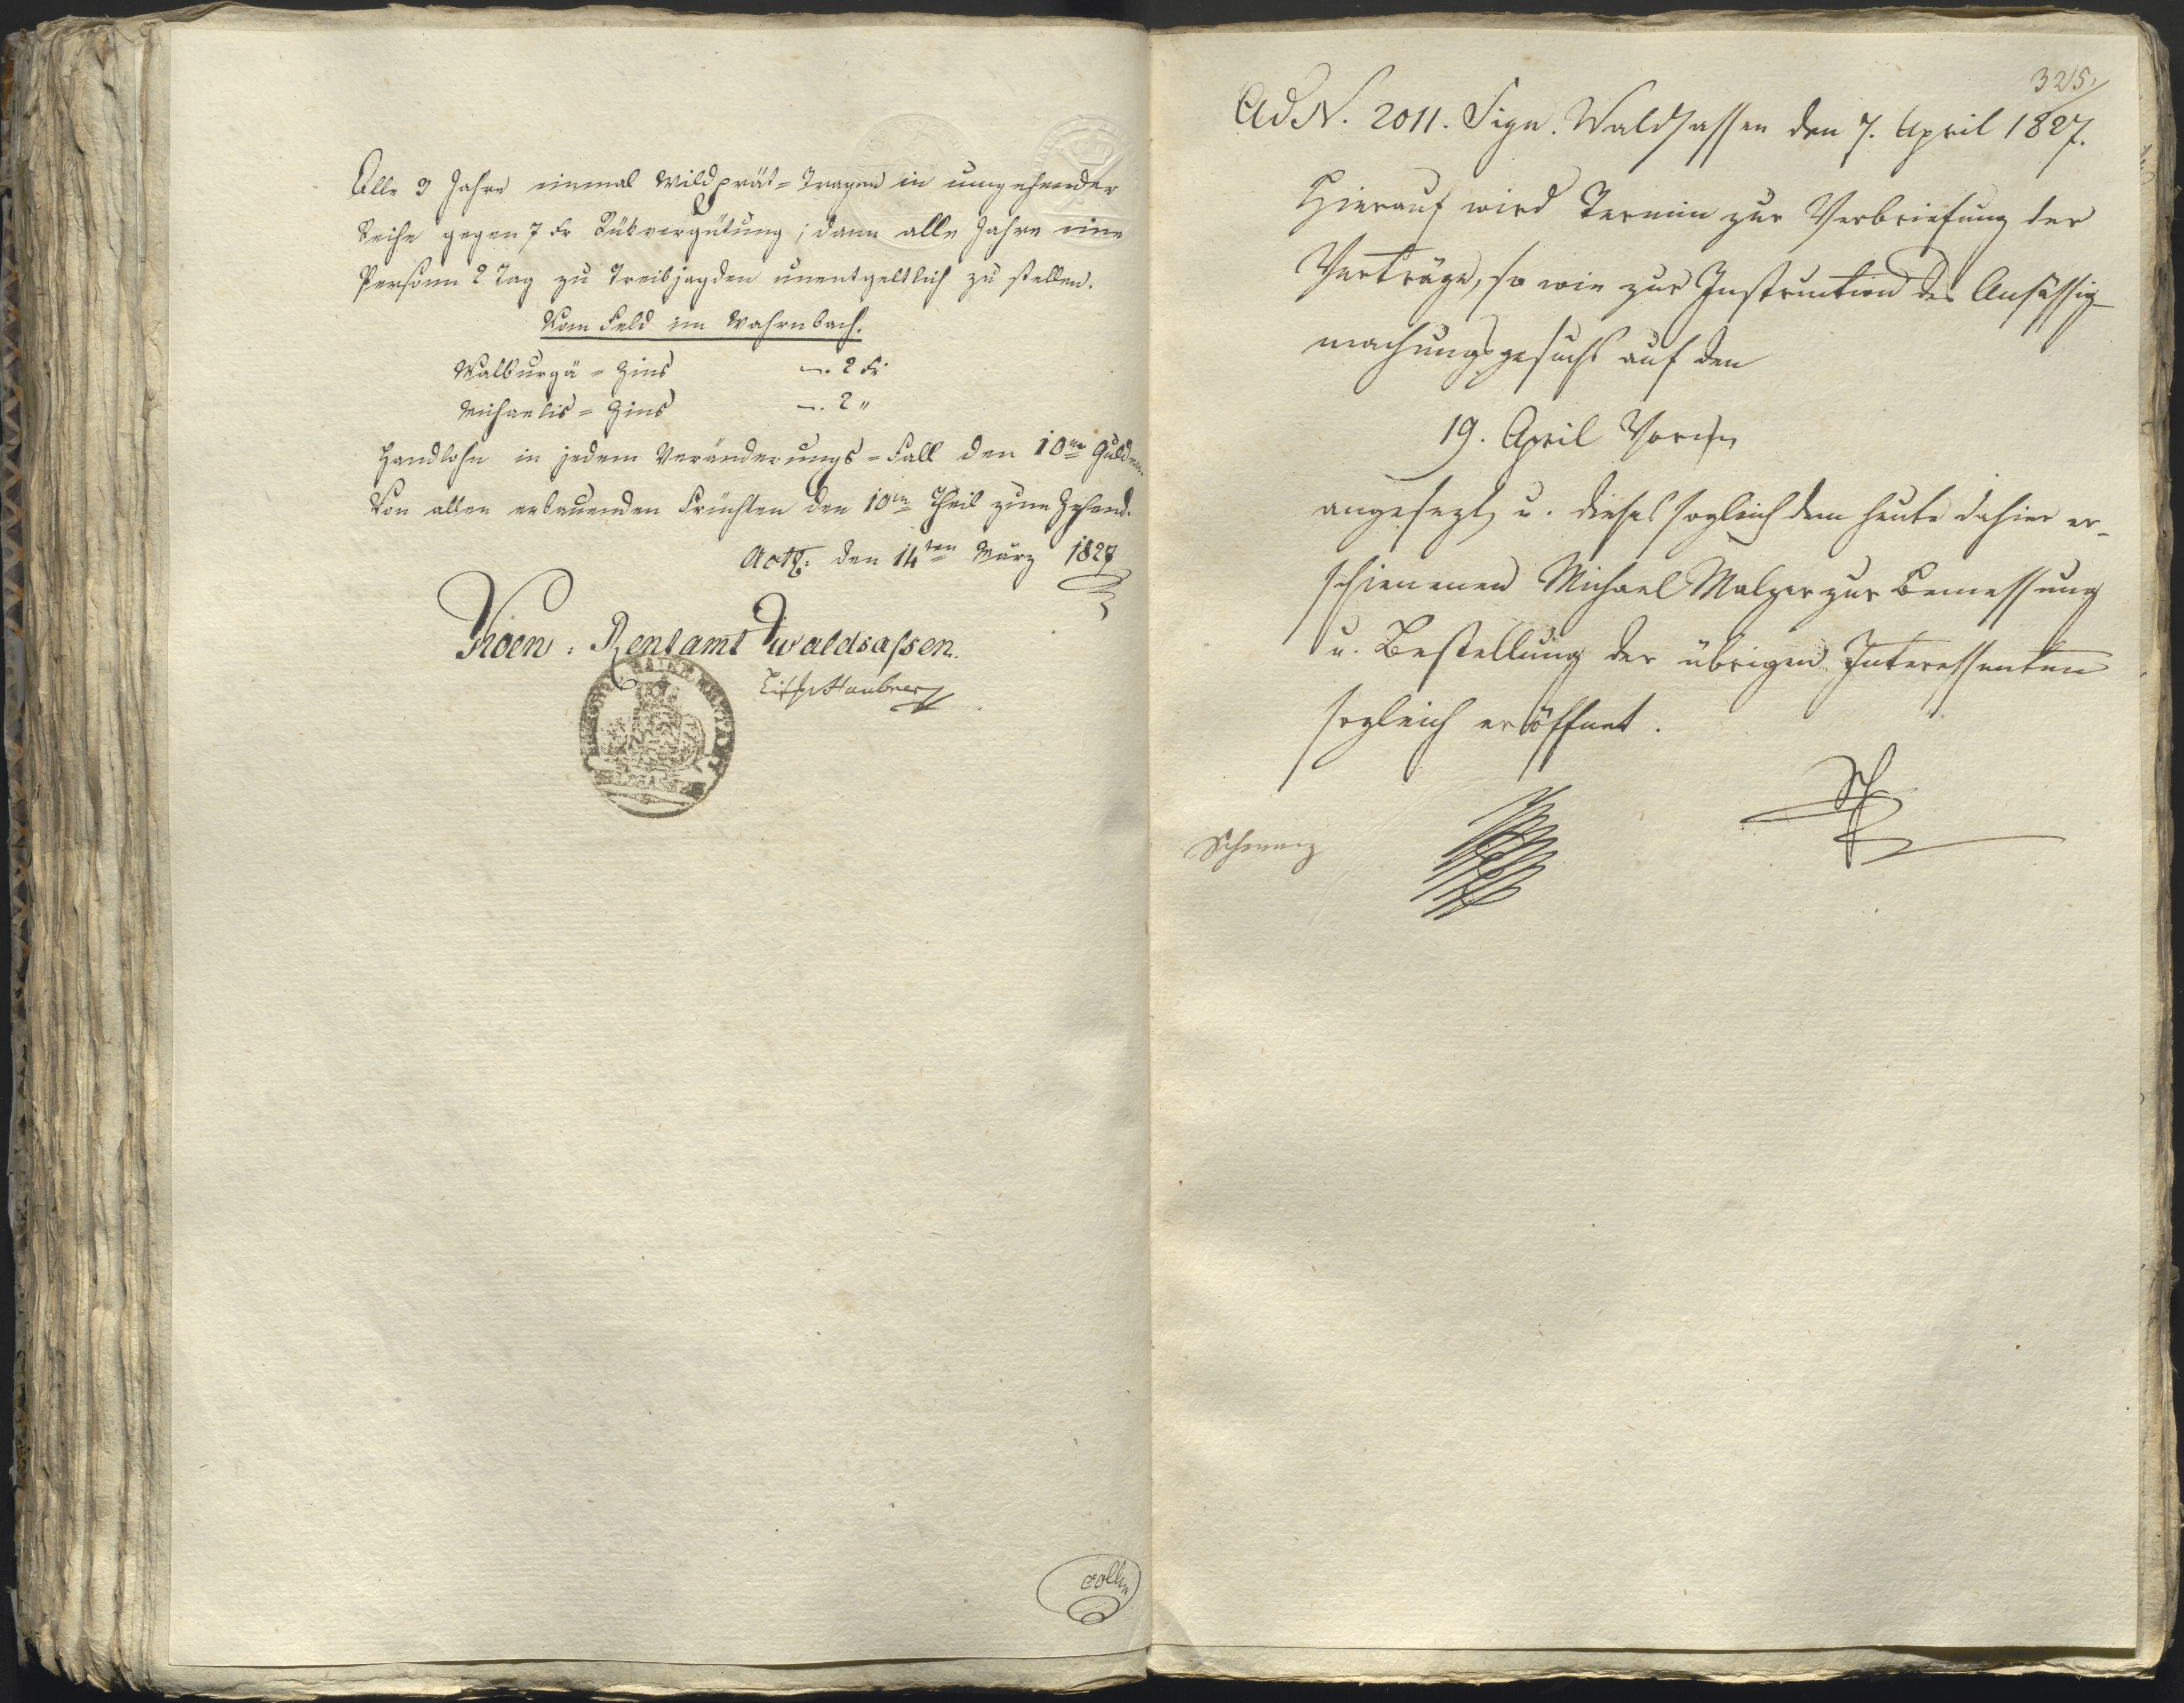 Alle 3 Jahre einmal Wildprät=Tragen in umgehender
Reihe gegen 7 Kr Rükvergütung; dann alle Jahre eine
Persohn 2 Tag zu Treibjagden unentgeltlich zu stellen.
Vom Feld im
Walburgä = Zins —. 2 Kr
Michaelis = Zins —. 2 "
Handlohn in jedem Veränderungs=Fall den 10ten Gulden.
Von allen erbauenden Früchten den 10ten Theil zum Zehend.
Act. den 14ten März 1827
Rentamt Waldsassen.
325.
Ad N. 2011. Sign. Waldsassen den 7. April 1827.
Hierauf wird Termin zur Verbriefung der
Verträge, so wie zur Instruction des Ansässig-
machungsgesuchs auf den
19. April
angesezt, u. dieses sogleich dem heute dahier er-
schienenen Michael Malzer zur Bemessung
u. Bestellung der übrigen Interessenten
sogleich eröffnet.